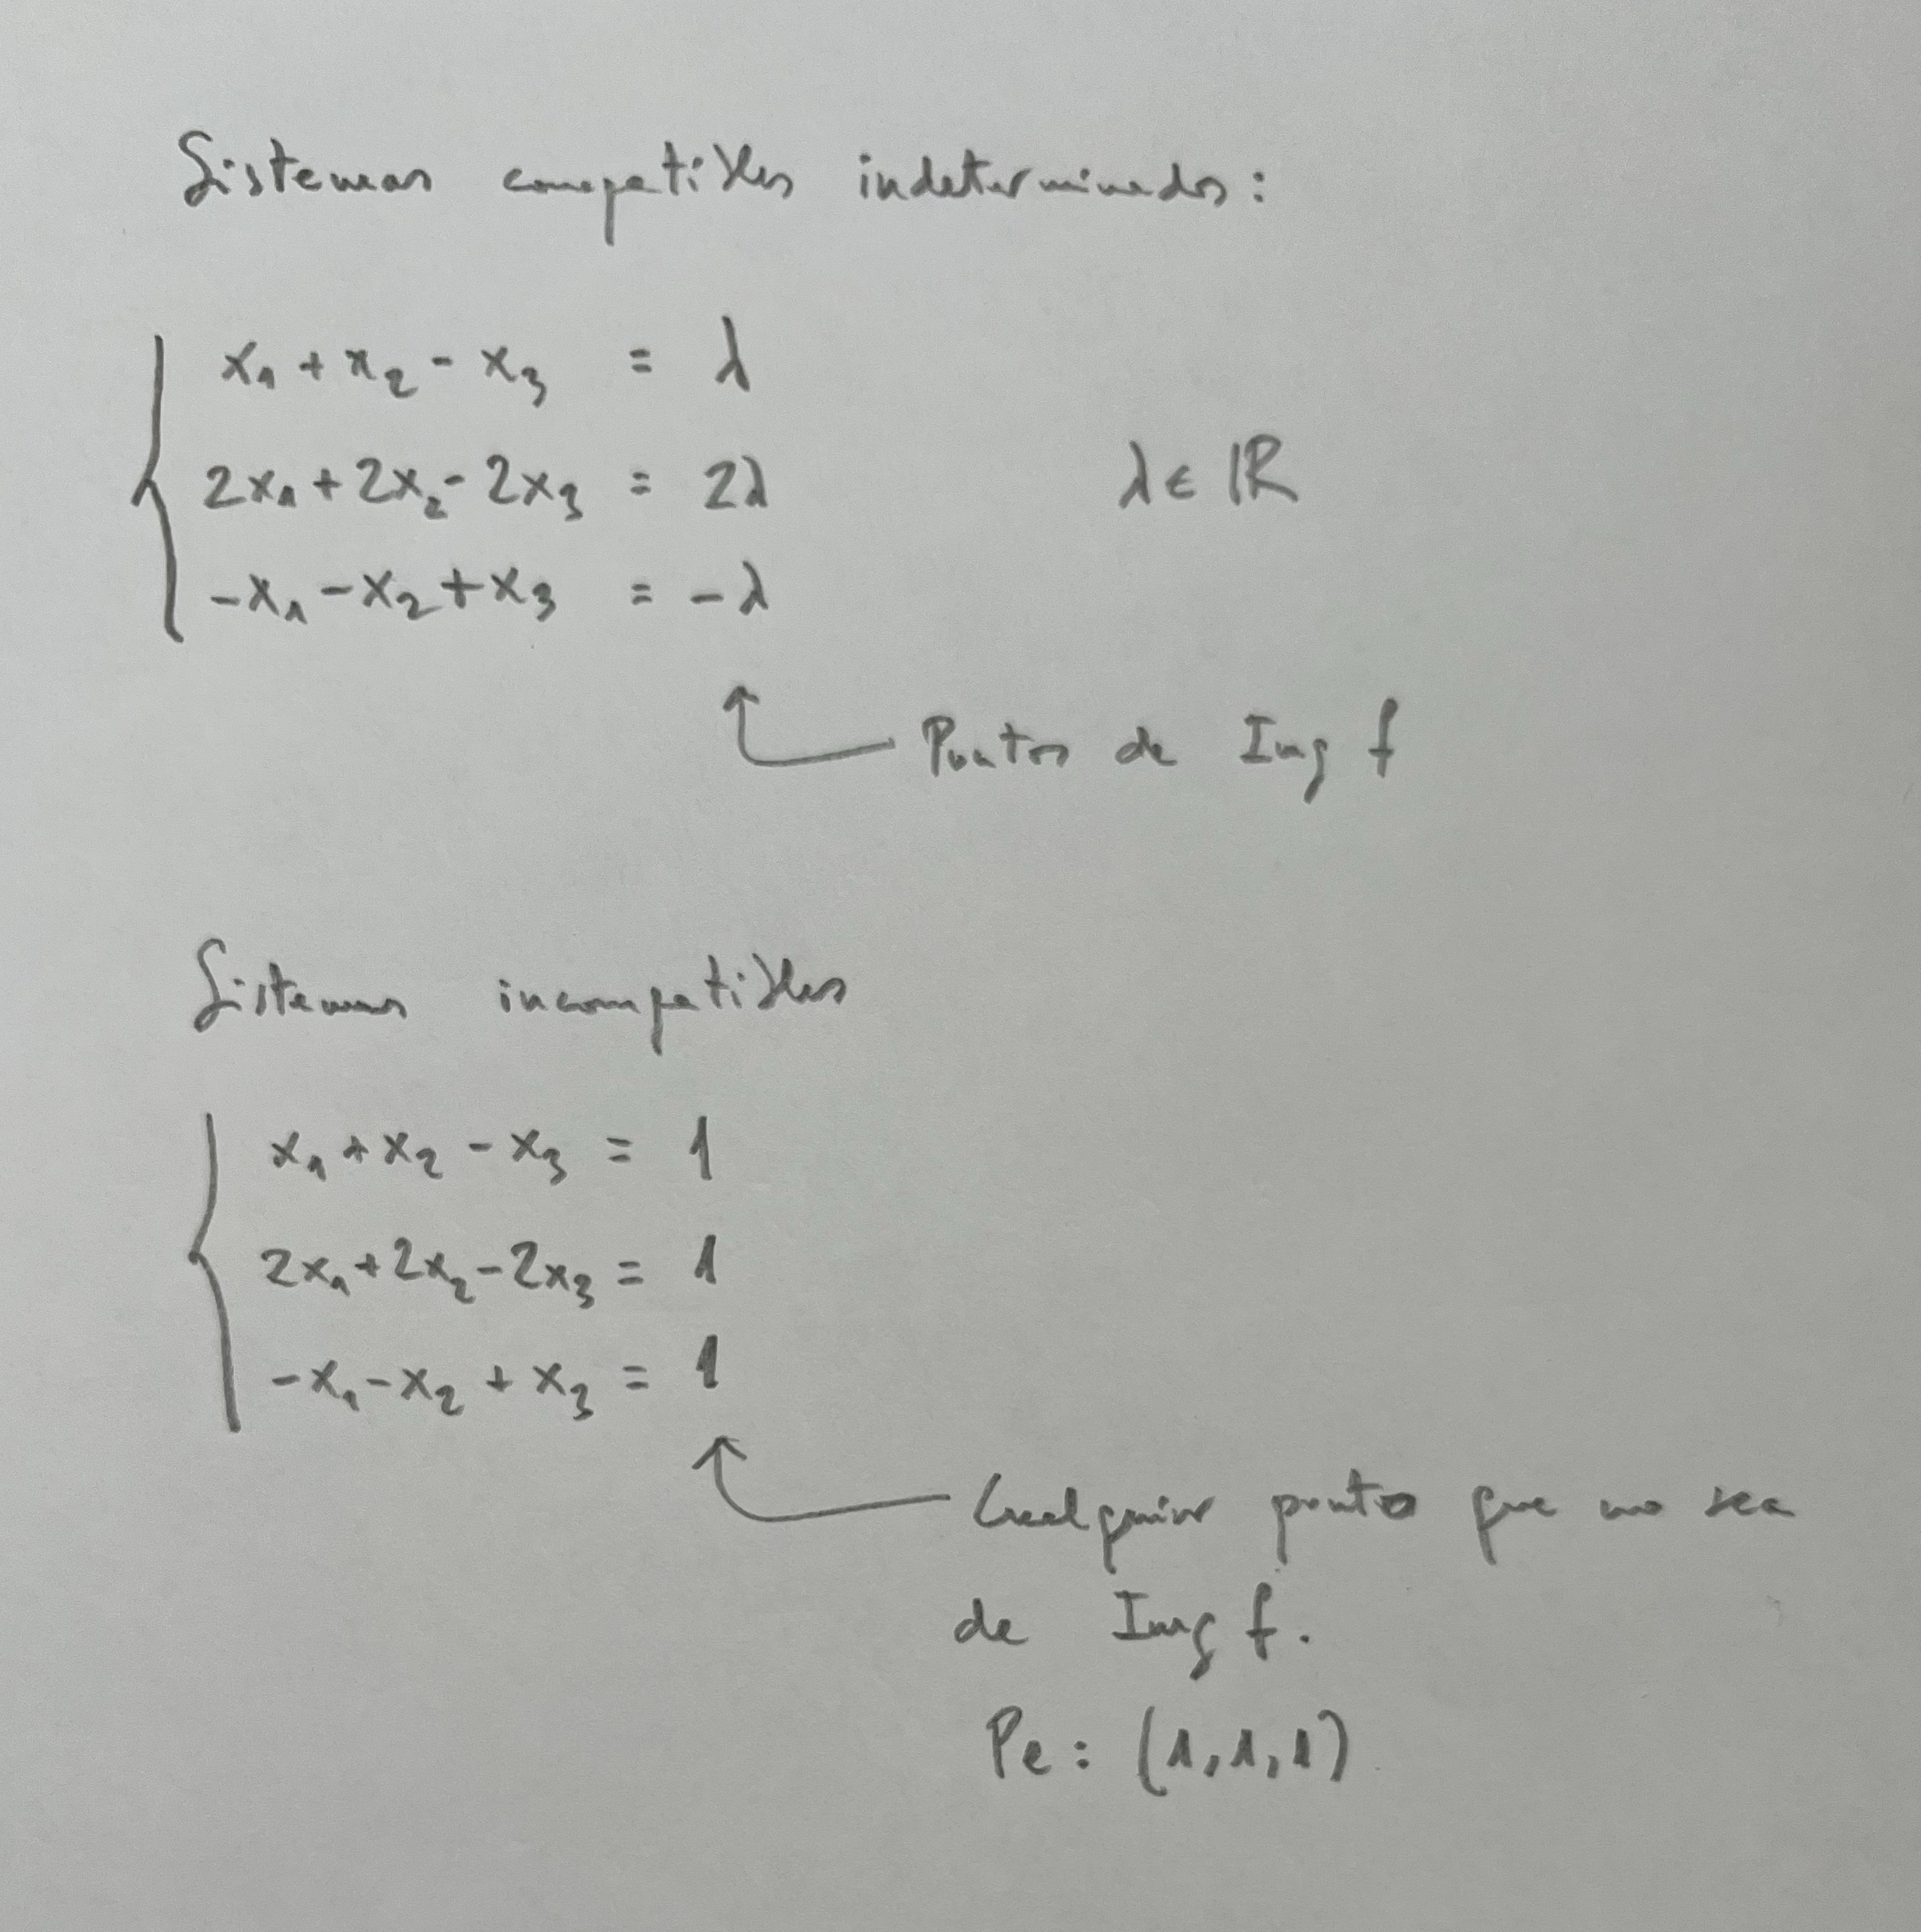 Sistemas compatibles indeterminados:
x₁ + x₂ - x₃ = λ
2x₁ + 2x₂ - 2x₃ = 2λ λ ∈ ℝ
-x₁ - x₂ + x₃ = -λ
Puntos de Img f
Sistemas incompatibles
x₁ + x₂ - x₃ = 1
2x₁ + 2x₂ - 2x₃ = 1
-x₁ - x₂ + x₃ = 1
Cualquier punto que no sea
de Img f.
Pe: (1,1,1)